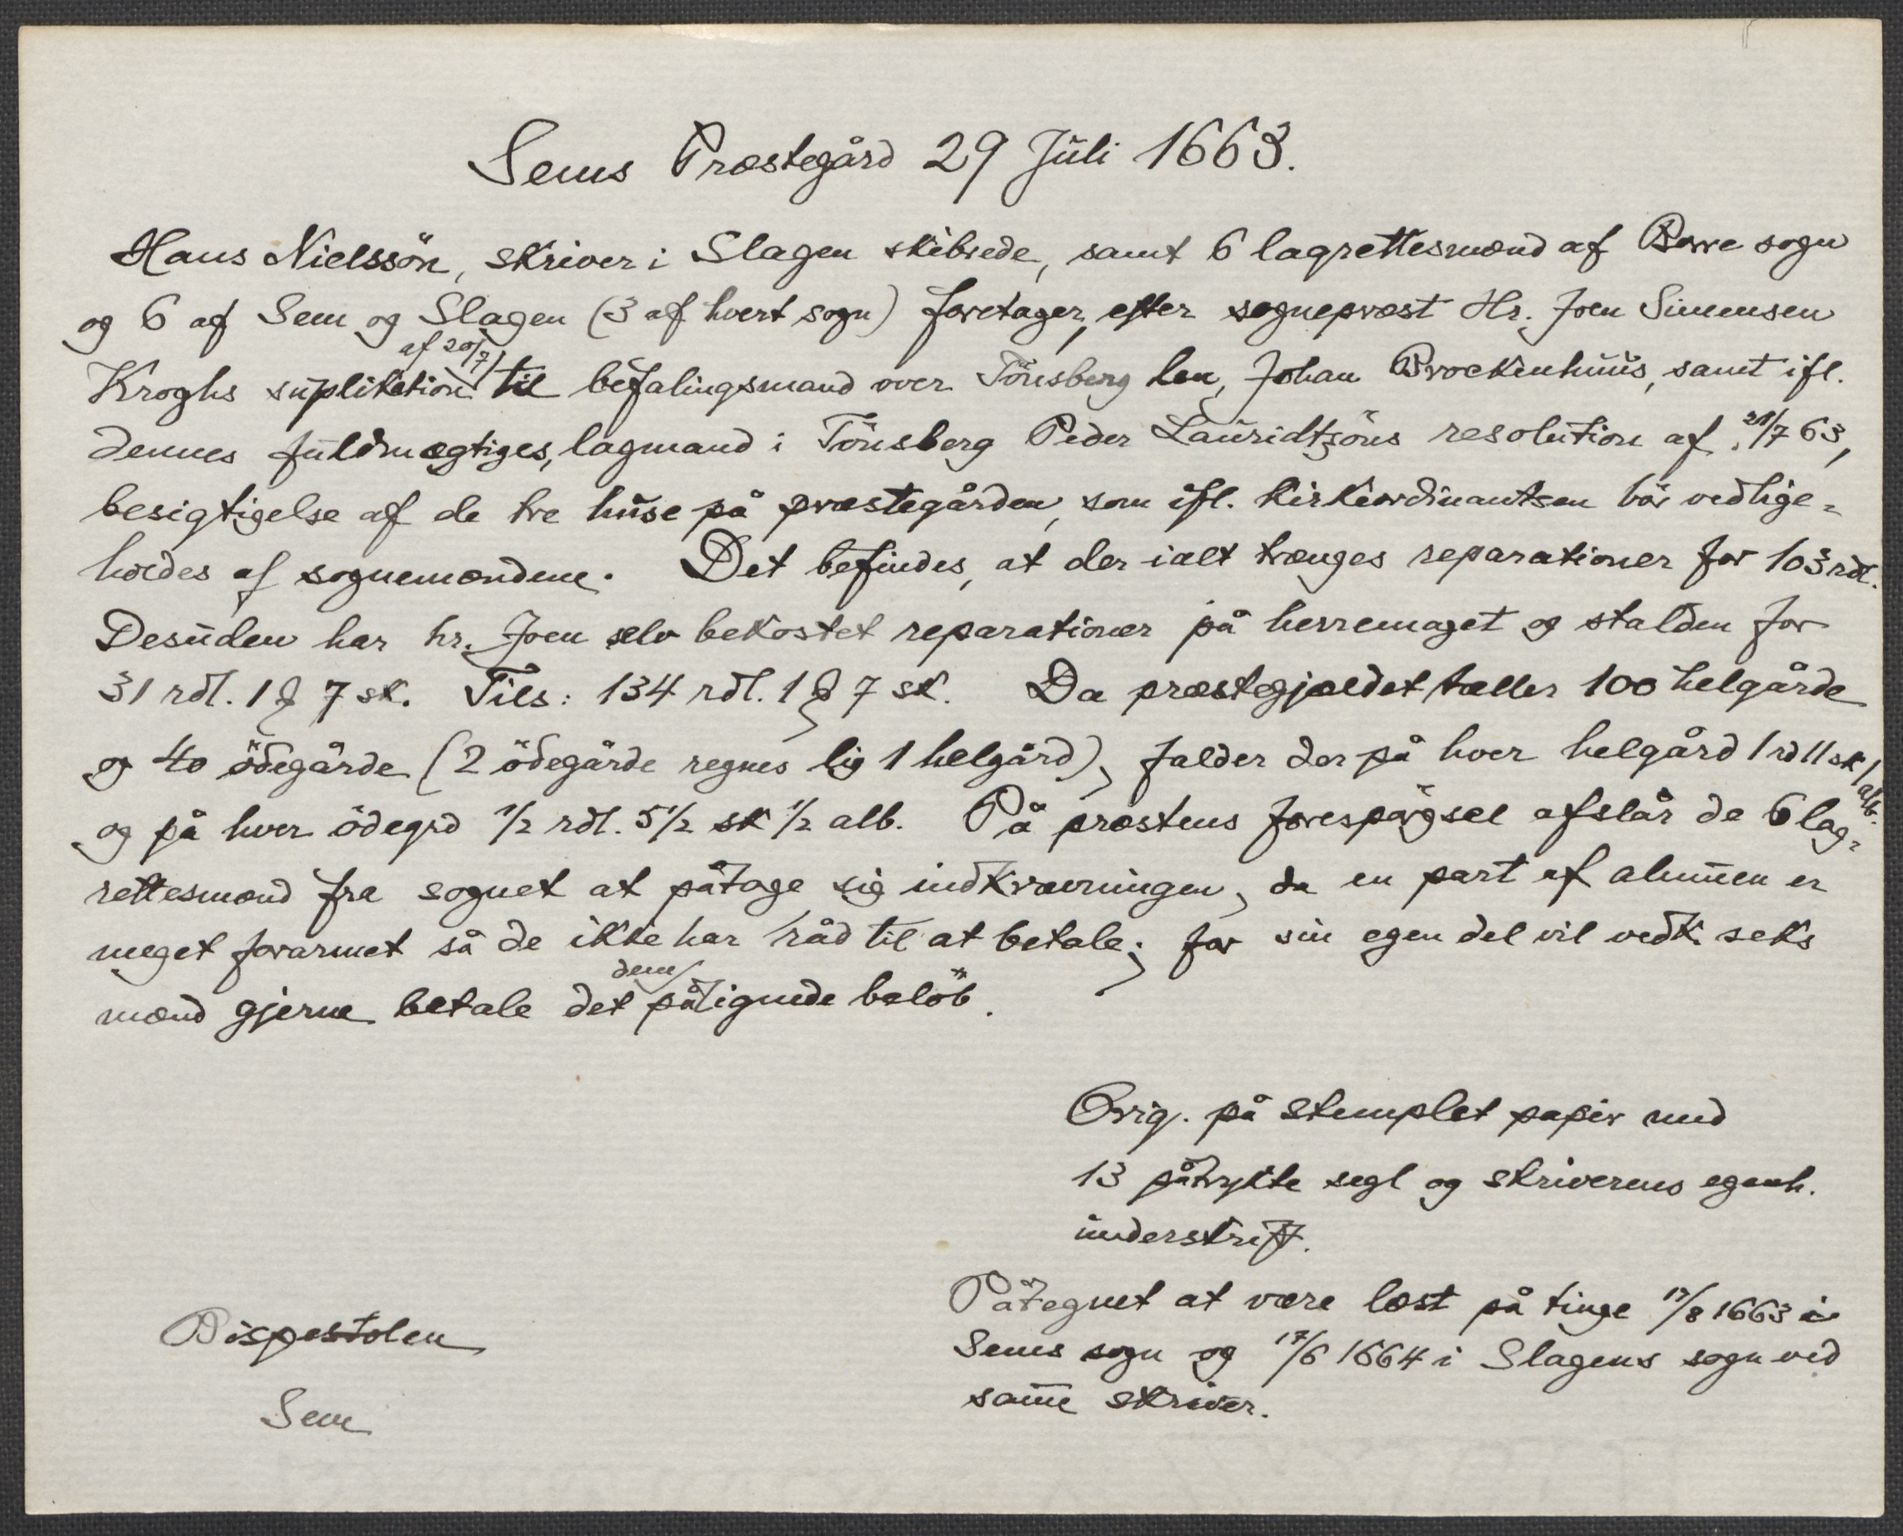 Sems Præstegård 29 Juli 1663.
Hans Nielssön, skriver i Slagen skibrede, samt 6 lagrettesmænd af Borre sogn
og 6 af Sem og Slagen (3 af hvert sogn) foretager, efter sognepræst Hr. Joen Simensen
Kroghs suplikation af 20/7 til befalingsmand over Tönsberg len, Johan Brockenhuus, samt ifl.
dennes fuldmægtiges, lagmand i Tönsberg Peder Lauridtzöns resolution af 21/7 63,
besigtigelse af de tre huse på præstegården, som ifl. kirkeordinantsen bör vedlige=
holdes af sognemændene. Det befindes, at der ialt trænges reparationer for 103 rdl.
Desuden har hr. Joen selv bekostet reparationer på herremaget og stalden for
31 rdl. 1 ꝥ 7 sk. Tils: 134 rdl. 1 ꝥ 7 sk. Da præstegjældet tæller 100 helgårde
og 40 ödegårde (2 ödegårde regnes lig 1 helgård), falder der på hver helgård 1 rd 11 sk 1 alb.
og på hver ödegrd 1/2 rdl. 5 1/2 sk 1/2 alb. På præstens forespörgsel afslår de 6 lag=
rettesmænd fra sognet at påtage sig indkrævningen, da en part af almuen er
meget forarmet så de ikke har råd til at betale; for sin egen del vil vedk. seks
mænd gjerne betale det dem pålignede belöb.
Orig. på stemplet papir med
13 påtrykte segl og skriverens egenh.
underskrift.
Påtegnet at være læst på tinge 17/8 1663 i
Sems sogn og 17/6 1664 i Slagens sogn ved
samme skriver.
Bispestolen
Sem